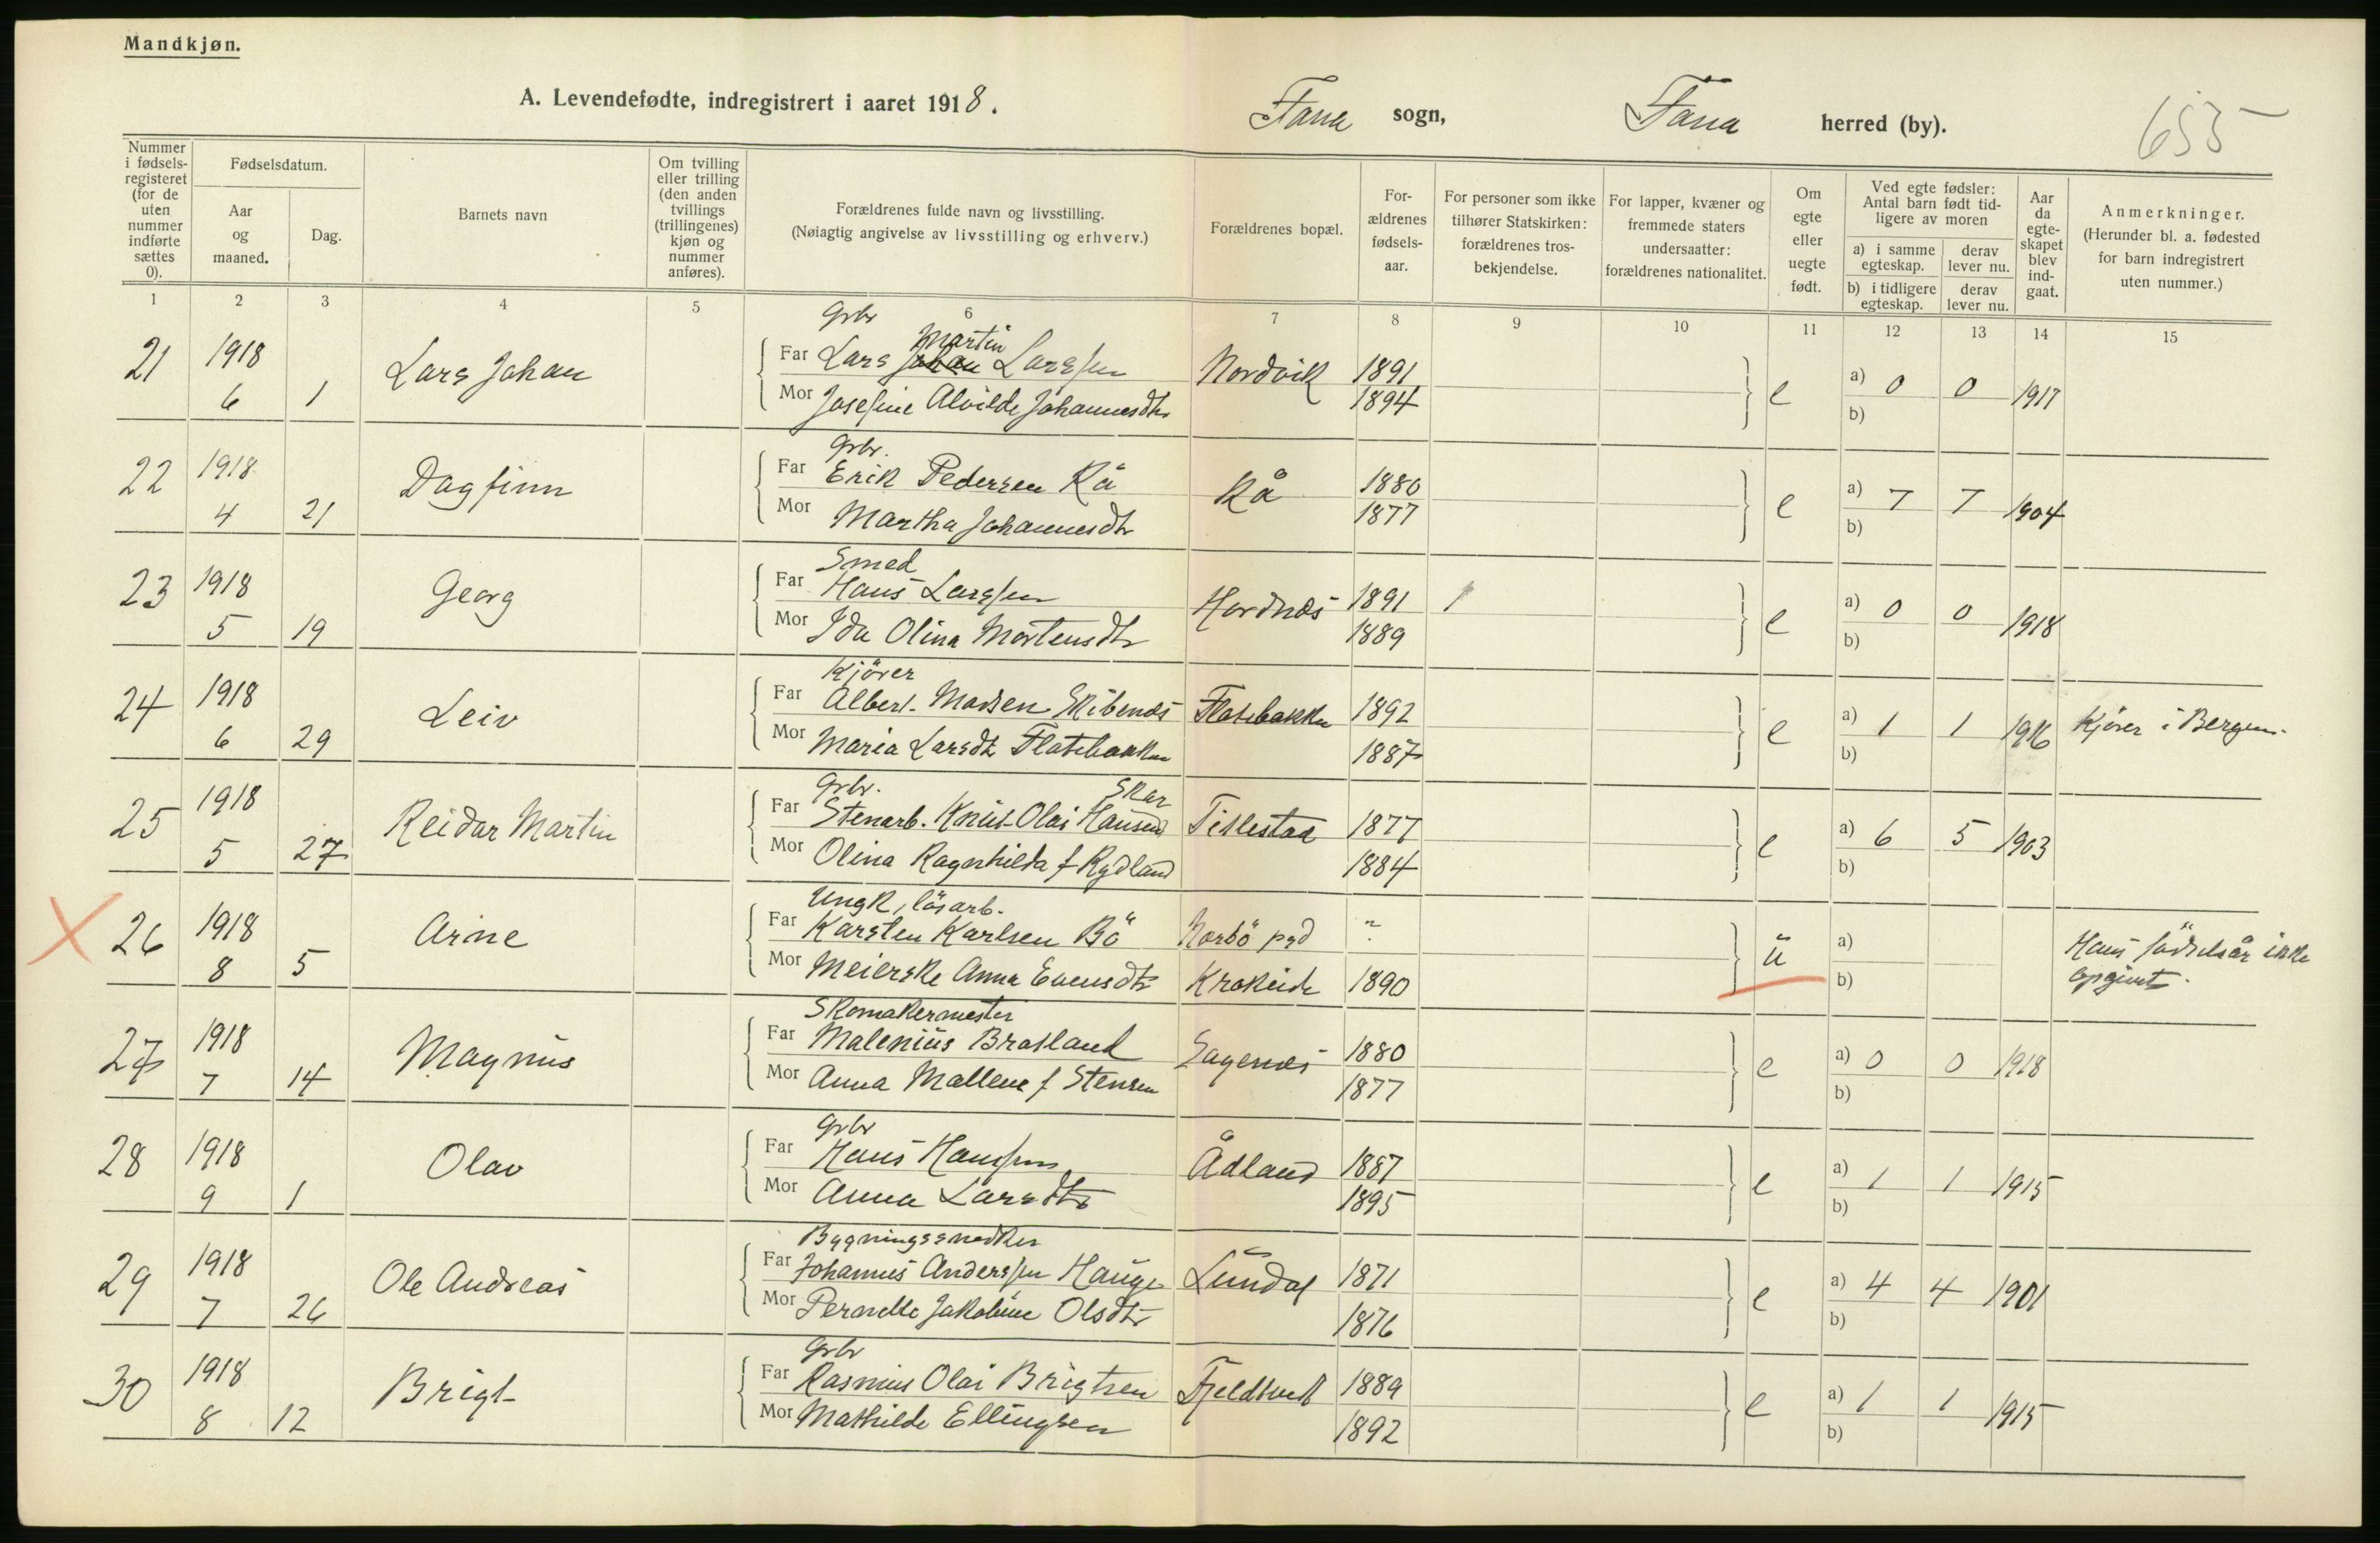 Mandkjøn.
A. Levendefødte, indregistrert i aaret 1918.
Fana sogn, Fana herred (by).
655
Nummer i fødselsregisteret (for de uten nummer indførte sættes 0).
Fødselsdatum.
Aar og maaned.
Dag.
Barnets navn
Om tvilling eller trilling (den anden tvillings (trillingenes) kjøn og nummer anføres).
Forældrenes fulde navn og livsstilling.
(Nøiagtig angivelse av livsstilling og erhverv.)
Forældrenes bopæl.
Forældrenes fødselsaar.
For personer som ikke tilhører Statskirken: forældrenes trosbekjendelse.
For lapper, kvæner og fremmede staters undersaatter: forældrenes nationalitet.
Om egte eller uegte født.
Ved egte fødsler: Antal barn født tidligere av moren
a) i samme egteskap. derav lever nu.
b) i tidligere egteskap. derav lever nu.
Aar da egteskapet blev indgaat.
Anmerkninger.
(Herunder bl. a. fødested for barn indregistrert uten nummer.)
1 2 3 4 5 6 7 8 9 10 11 12 13 14 15
Grbr
21 1918 Lars Johan Far Lars Martin Larssen Nordvik 1891 e a) 0 0 1917
6 1 Mor Josefine Alvilde Johannesdtr 1894 b)
Grbr.
22 1918 Dagfinn Far Erik Pedersen Rå Rå 1880 e a) 7 7 1904
4 21 Mor Martha Johannesdtr 1877 b)
Smed
23 1918 Georg Far Hans Larssen Hordnes 1891 1 e a) 0 0 1918
5 19 Mor Ida Olina Mortensdtr 1889 b)
Kjörer
24 1918 Leiv Far Albert Madsen Skibenes Flatebakken 1892 e a) 1 1 1916 Kjörer i Bergen.
6 29 Mor Maria Larsdtr Flatebakken 1887 b)
Grbr. Skar
25 1918 Reidar Martin Far Stenarb. Knut Olai Hansen Titlestad 1877 e a) 6 5 1903
5 27 Mor Olina Ragnhilda f Rydland 1884 b)
Ungk, lösarb.
X 26 1918 Arne Far Karsten Karlsen Bö Norbö pgd ? u a) Hans födselsår ikke
8 5 Mor Meierske Anna Evensdtr Krokeide 1890 b) opgivet.
Skomakermester
27 1918 Magnus Far Malenius Bratland Sagenes 1880 e a) 0 0 1918
7 14 Mor Anna Mallene f Stensen 1877 b)
Grbr
28 1918 Olav Far Hans Hanssen Ådland 1887 e a) 1 1 1915
9 1 Mor Anna Larsdtr 1895 b)
Bygningssnedker
29 1918 Ole Andreas Far Johannes Anderssen Hauge Lundal 1871 e a) 4 4 1901
7 26 Mor Pernelle Jakobine Olsdtr 1876 b)
Grbr
30 1918 Brigt Far Rasmus Olai Brigtsen Fjeldtvedt 1889 e a) 1 1 1915
8 12 Mor Mathilde Ellingsen 1892 b)